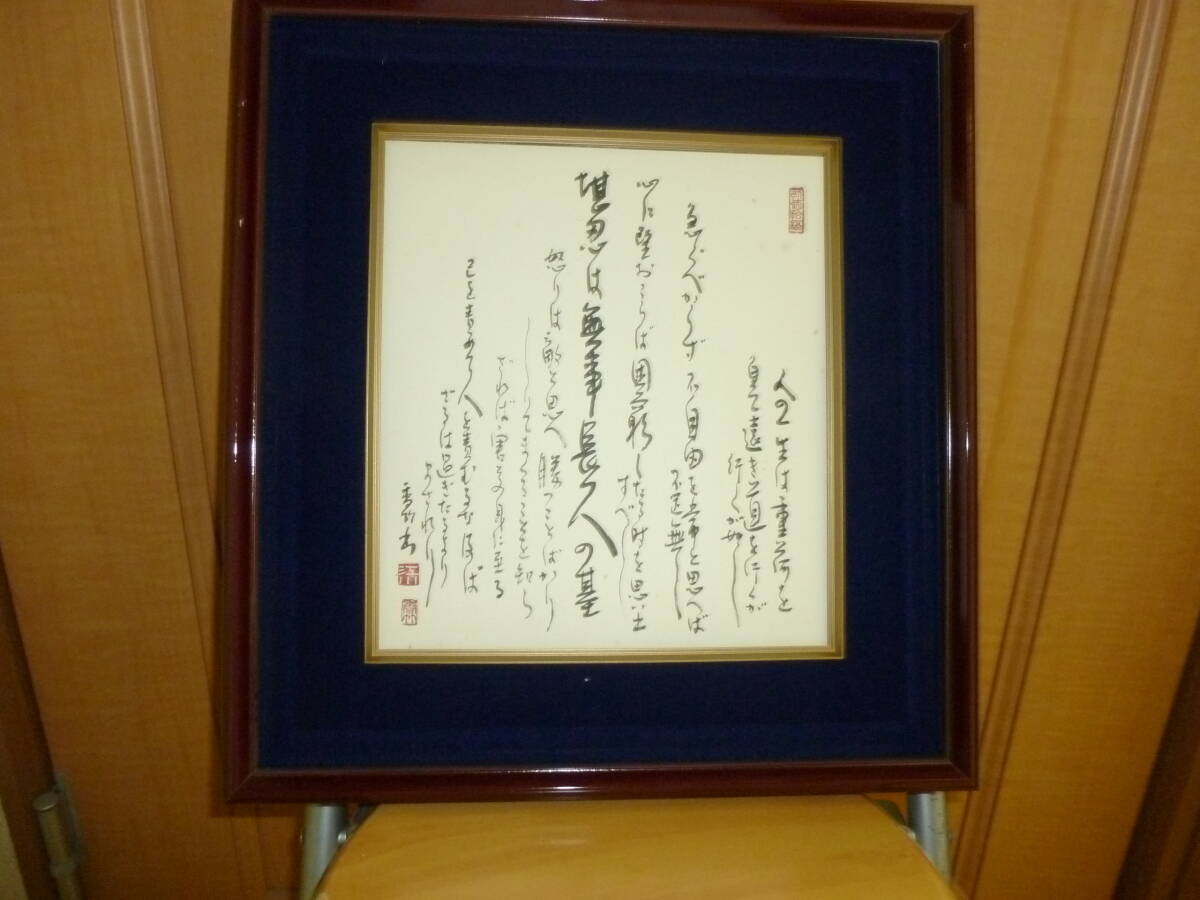 人の一生は重荷を
負て遠き道を行くが
行くが如し
急ぐべからず不自由を常と思へば
不足無し
心に望おこらば困窮したる時を思い出
すべし
堪忍は無事長久の基
怒りは敵と思へ勝つことばかり
しりてまくることを知ら
ざれば害その身に至る
己を責めて人を責むるな及ば
ざるは過ぎたるより
まされり